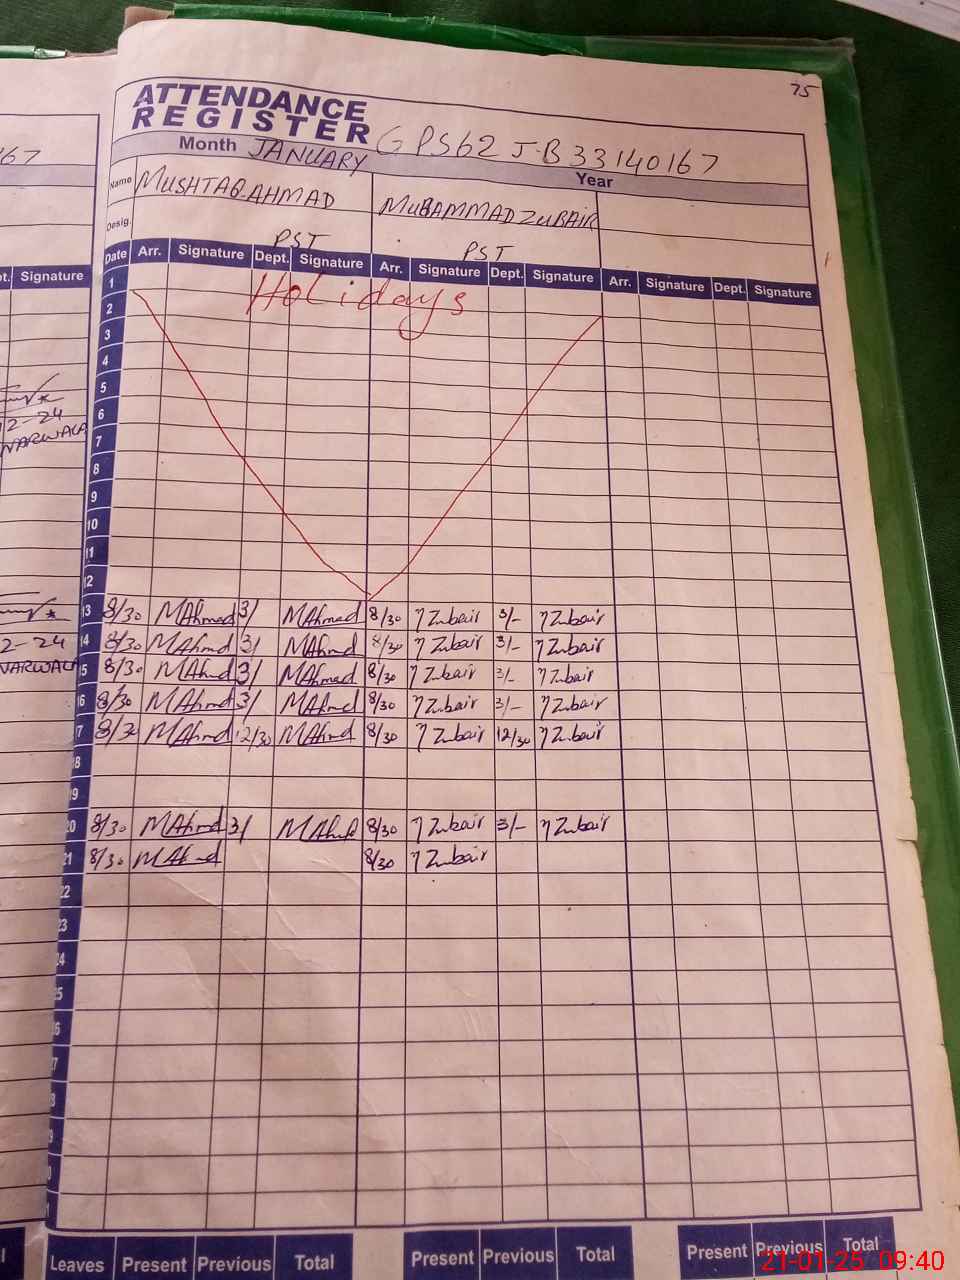 75
ATTENDANCE
REGISTER
GPS62 J-B 33140167
Month JANUARY Year
Name MUSHTAQ AHMAD MUBAMMAD ZUBAIR
Desig. PST PST
Date Arr. Signature Dept. Signature Arr. Signature Dept. Signature Arr. Signature Dept. Signature
Holidays
1
2
3
4
5
6
7
8
9
10
11
12
13 8/30 MAhmad 3/ MAhmad 8/30 Zubair 3/- Zubair
14 8/30 MAhmd 3/ MAhmd 8/30 Zubair 3/- Zubair
15 8/30 MAhmd 3/ MAhmad 8/30 Zubair 3/- Zubair
16 8/30 MAhmd 3/ MAhmd 8/30 Zubair 3/- Zubair
17 8/30 MAhmd 12/30 MAhmd 8/30 Zubair 12/30 Zubair
18
19
20 8/30 MAhmd 3/ MAhmd 8/30 Zubair 3/- Zubair
21 8/30 MAhmd 8/30 Zubair
22
23
24
25
Leaves Present Previous Total Present Previous Total Present Previous Total
21-01-25 09:40
167
Signature
12-24
NARWALA
2-24
NARWALA